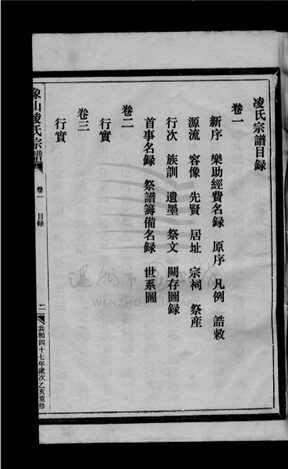 凌氏宗譜目録
卷一
新序 樂助經費名録 原序 凡例 誥敕
源流 容像 先賢 居址 宗祠 祭産
行次 族訓 遺墨 祭文 闕存圖録
首事名録 祭譜籌備名録 世系圖
卷二
行實
卷三
行實
象山凌氏宗譜 卷一 目録 二 共和四十七年歲次乙亥重修
WENZHO